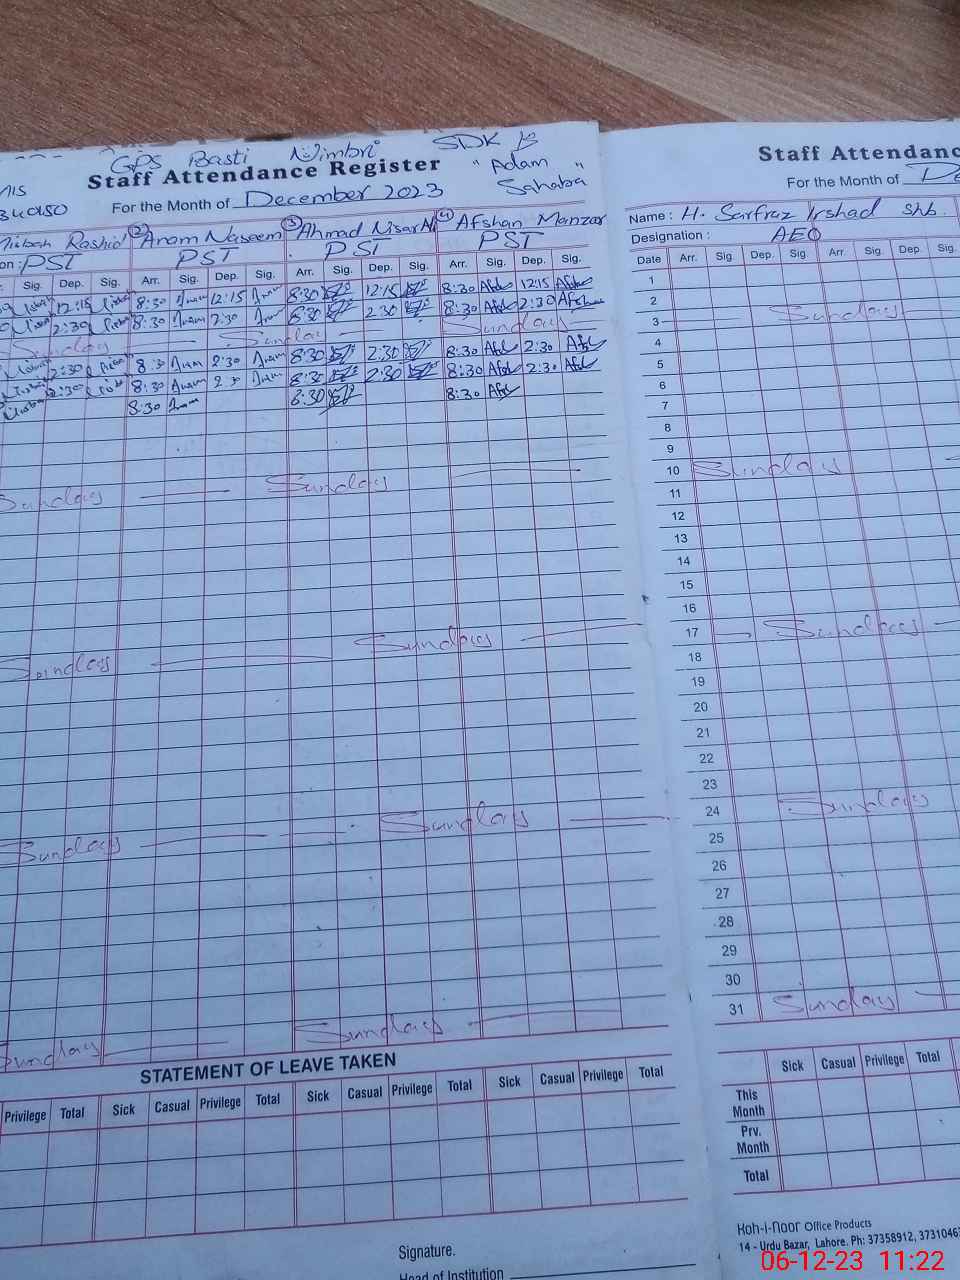 GPS Basti Nimbri SDK
Staff Attendance Register
"Adam Sahaba"
340150
For the Month of December 2023
Misbah Rashid (2) Anam Naseem (3) Ahmad Nisar (4) Afshan Manzar
PST PST PST PST
Sig. Dep. Sig. Arr. Sig. Dep. Sig. Arr. Sig. Dep. Sig. Arr. Sig. Dep. Sig.
12:15 8:30 Anam 12:15 Anam 8:30 12:15 8:30 12:15
2:30 8:30 Anam 2:30 8:30 2:30 8:30 2:30
Sunday Sunday Sunday
2:30 8:30 Anam 2:30 Anam 8:30 2:30 8:30 2:30
2:30 8:30 Anam 2:30 Anam 8:30 2:30 8:30 2:30
8:30 Anam 8:30 8:30
Sunday Sunday
Sunday Sunday
Sunday Sunday
Sunday Sunday
STATEMENT OF LEAVE TAKEN
Privilege Total Sick Casual Privilege Total Sick Casual Privilege Total Sick Casual Privilege Total
Signature.
Head of Institution
Staff Attendanc
For the Month of De
Name : H. Sarfraz Irshad Shb.
Designation : AEO
Date Arr. Sig. Dep. Sig. Arr. Sig. Dep. Sig.
1
2
3 Sunday
4
5
6
7
8
9
10 Sunday
11
12
13
14
15
16
17 Sunday
18
19
20
21
22
23
24 Sunday
25
26
27
28
29
30
31 Sunday
Sick Casual Privilege Total
This Month
Prv. Month
Total
Koh-i-noor Office Products
14 - Urdu Bazar, Lahore. Ph: 37358912, 3731046
06-12-23 11:22